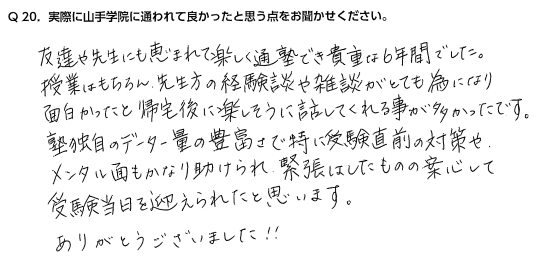 Q 20．実際に山手学院に通われて良かったと思う点をお聞かせください。
友達や先生にも恵まれて楽しく通塾でき貴重な6年間でした。
授業はもちろん、先生方の経験談や雑談がとても為になり
面白かったと帰宅後に楽しそうに話してくれる事が多かったです。
塾独自のデーター量の豊富さで特に受験直前の対策や、
メンタル面もかなり助けられ、緊張はしたものの安心して
受験当日を迎えられたと思います。
ありがとうございました!!